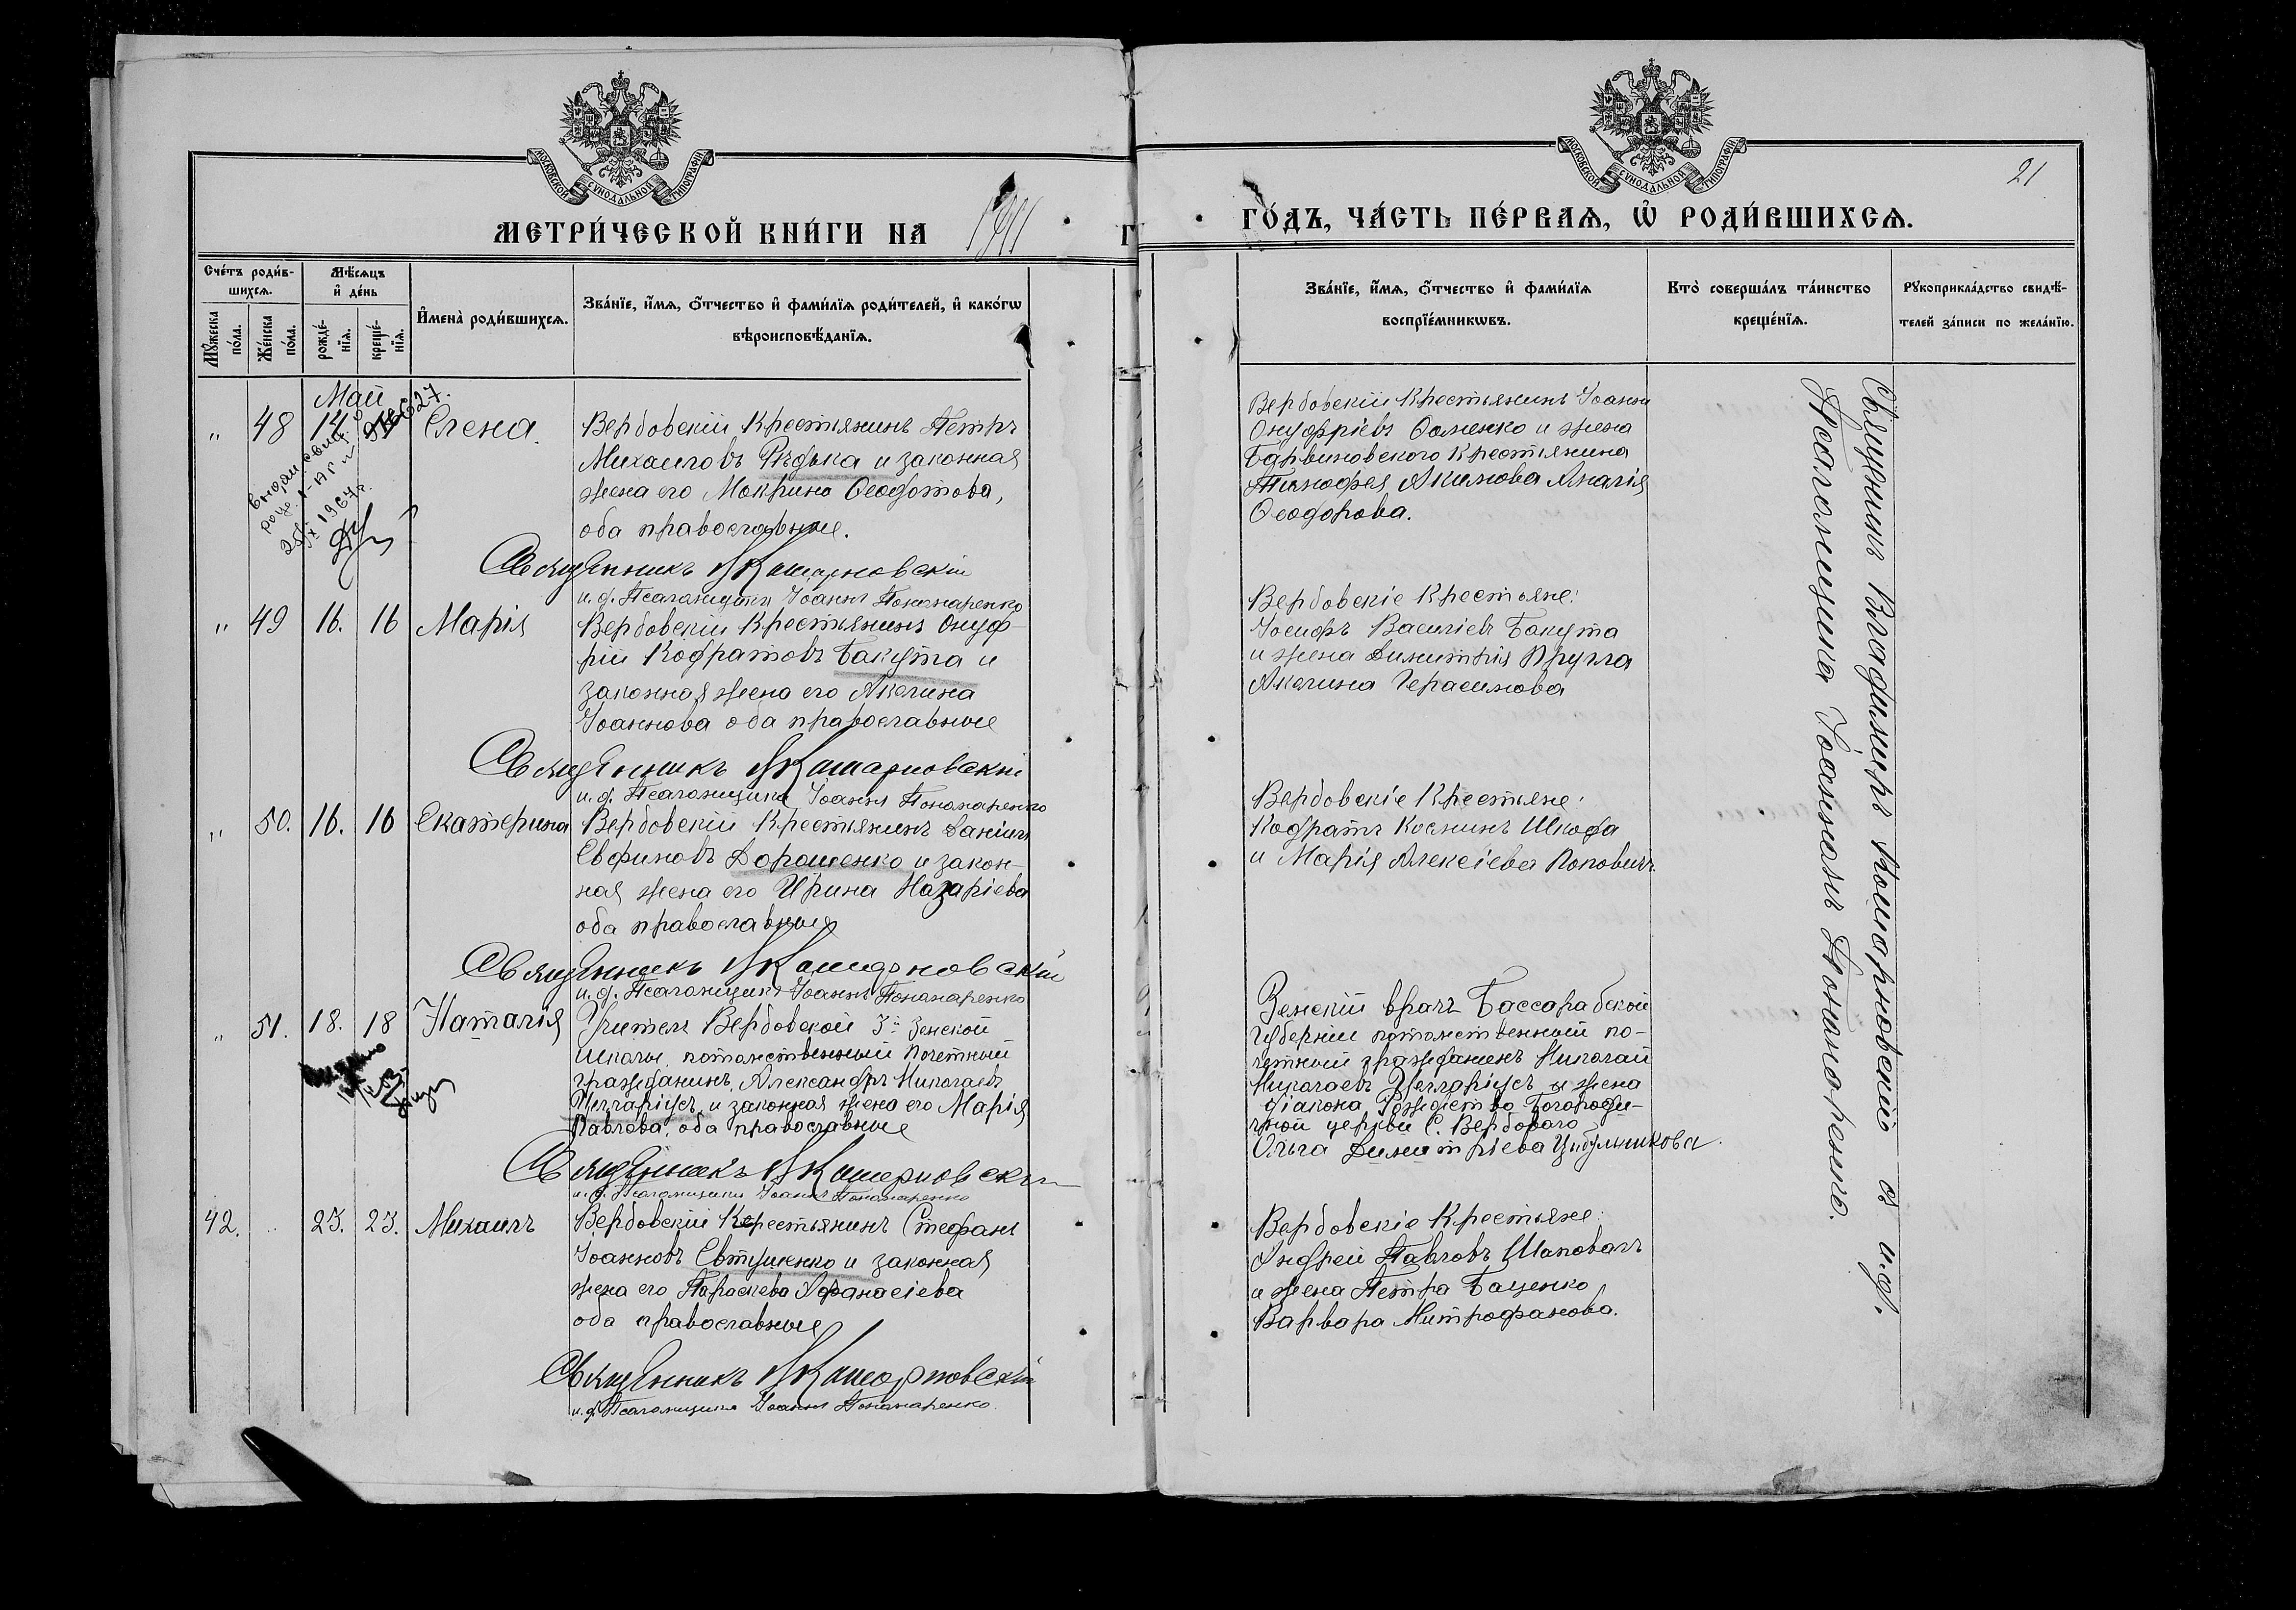 МОСКОВСКОЙ СУНОДАЛЬНОЙ ТИПОГРАФІИ
МЕТРИ́ЧЕСКОЙ КНИ́ГИ НА 1911
Сче́тъ роди́в-
шихсѧ.
Мꙋ́жеска по́ла.
Же́нска по́ла.
Мѣ́сѧцъ
и҆ де́нь
рожде́-
нїѧ.
креще́-
нїѧ.
И҆мена̀ роди́вшихсѧ.
Зва́нїе, и҆́мѧ, ѻ҆́тчество и҆ фами́лїѧ роди́телей, и҆ како́гѡ
вѣроисповѣ́данїѧ.
Май
„ 48 14 Елена.
Вербовскій Крестьянинъ Петръ
Михаиловъ Рѣдька и законная
жена его Мокрина Ѳеодотова,
оба православные.
Священникъ В Кошарновскій
и. д. Псаломщика Іоаннъ Пономаренко
„ 49 16. 16 Марія
Вербовскій Крестьянинъ Онуф-
рій Кодратовъ Бакута и
законная жена его Акелина
Іоаннова оба православные
Священникъ В Кошарновскій
и. д. Псаломщика Іоаннъ Пономаренко
„ 50. 16. 16 Екатерина
Вербовскій Крестьянинъ Даніилъ
Евфимовъ Дорошенко и закон-
ная жена его Ирина Назаріева
оба православные
Священникъ В Кошарновскій
и. д. Псаломщика Іоаннъ Пономаренко
„ 51. 18. 18 Наталія
Учитель Вербовской 3й Земской
школы, потомственный почетный
гражданинъ, Александръ Николаевъ
Целларіусъ и законная жена его Марія
Павлова, оба православные
Священникъ В Кошарновскій
и. д. Псаломщика Іоаннъ Пономаренко
42. „ 23. 23. Михаилъ
Вербовскій Крестьянинъ Стефанъ
Іоанновъ Евтушенко и законная
жена его Параскева Афанасіева
оба православные
Священникъ В Кошарновскій
и. д. Псаломщика Іоаннъ Пономаренко.
МОСКОВСКОЙ СУНОДАЛЬНОЙ ТИПОГРАФІИ
21
ГО́ДЪ, ЧА́СТЬ ПЕ́РВАѦ, Ѡ҆ РОДИ́ВШИХСѦ.
Зва́нїе, и҆́мѧ, ѻ҆́тчество и҆ фами́лїѧ
воспрїе́мникѡвъ.
Кто̀ соверша́лъ та́инство
креще́нїѧ.
Рꙋкоприкла́дство свидѣ́-
телей за́писи по жела́нїю.
Вербовскій Крестьянинъ Іоаннъ
Онуфріевъ и жена
Барвиновского Крестьянина
Тимофея Акимова
Ѳеодорова.
Вербовскіе Крестьяне:
Іосифъ Василіевъ Бакута
и жена Димитрія Кругла
Акелина Герасимова
Вербовскіе Крестьяне:
Кодратъ Космин Шкода
и Марія Алексіева Поповичъ.
Земскій врачъ Бассарабской
губерніи потомственный по-
четный гражданинъ Николай
Николаевъ Целларіусъ и жена
діакона Рождество Богороди-
чной церкви С. Вербового
Ольга Димитріева Цыбульникова.
Вербовскіе Крестьяне:
Андрей Павловъ Шаповалъ
и жена Петра Баценко
Варвара Митрофанова.
Священникъ Владиміръ Кошарновскій съ и.д.
Псаломщика Іоанномъ Пономаренко.